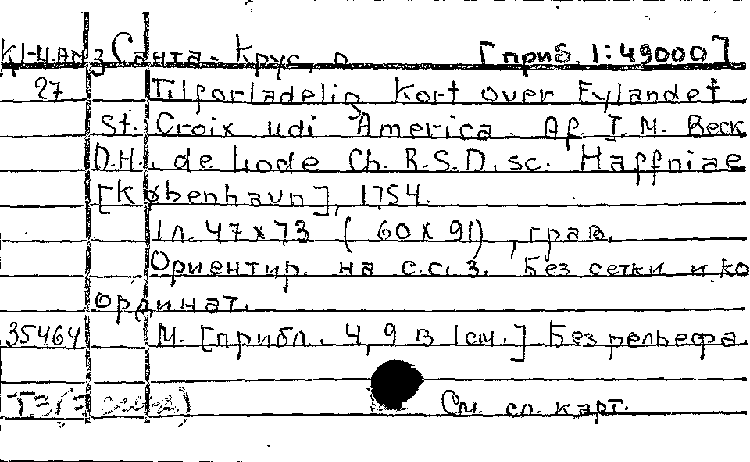 К1-Ц.Ам. 3 Санта-Крус, о. [приб. 1:49000]
27 Tilforladelig Kort over Eylandet
St. Croix udi America. Af I.M. Beck
O.H. de Lode Ch. R.S.D. sc. Haffniae
[København], 1754.
1 л. 47x73 (60x91), грав.
Ориентир. на с.с.з. Без сетки и ко
ординат.
35464 М. [прибл. 4,9 в 1см.] Без рельефа.
См. сл. карт.